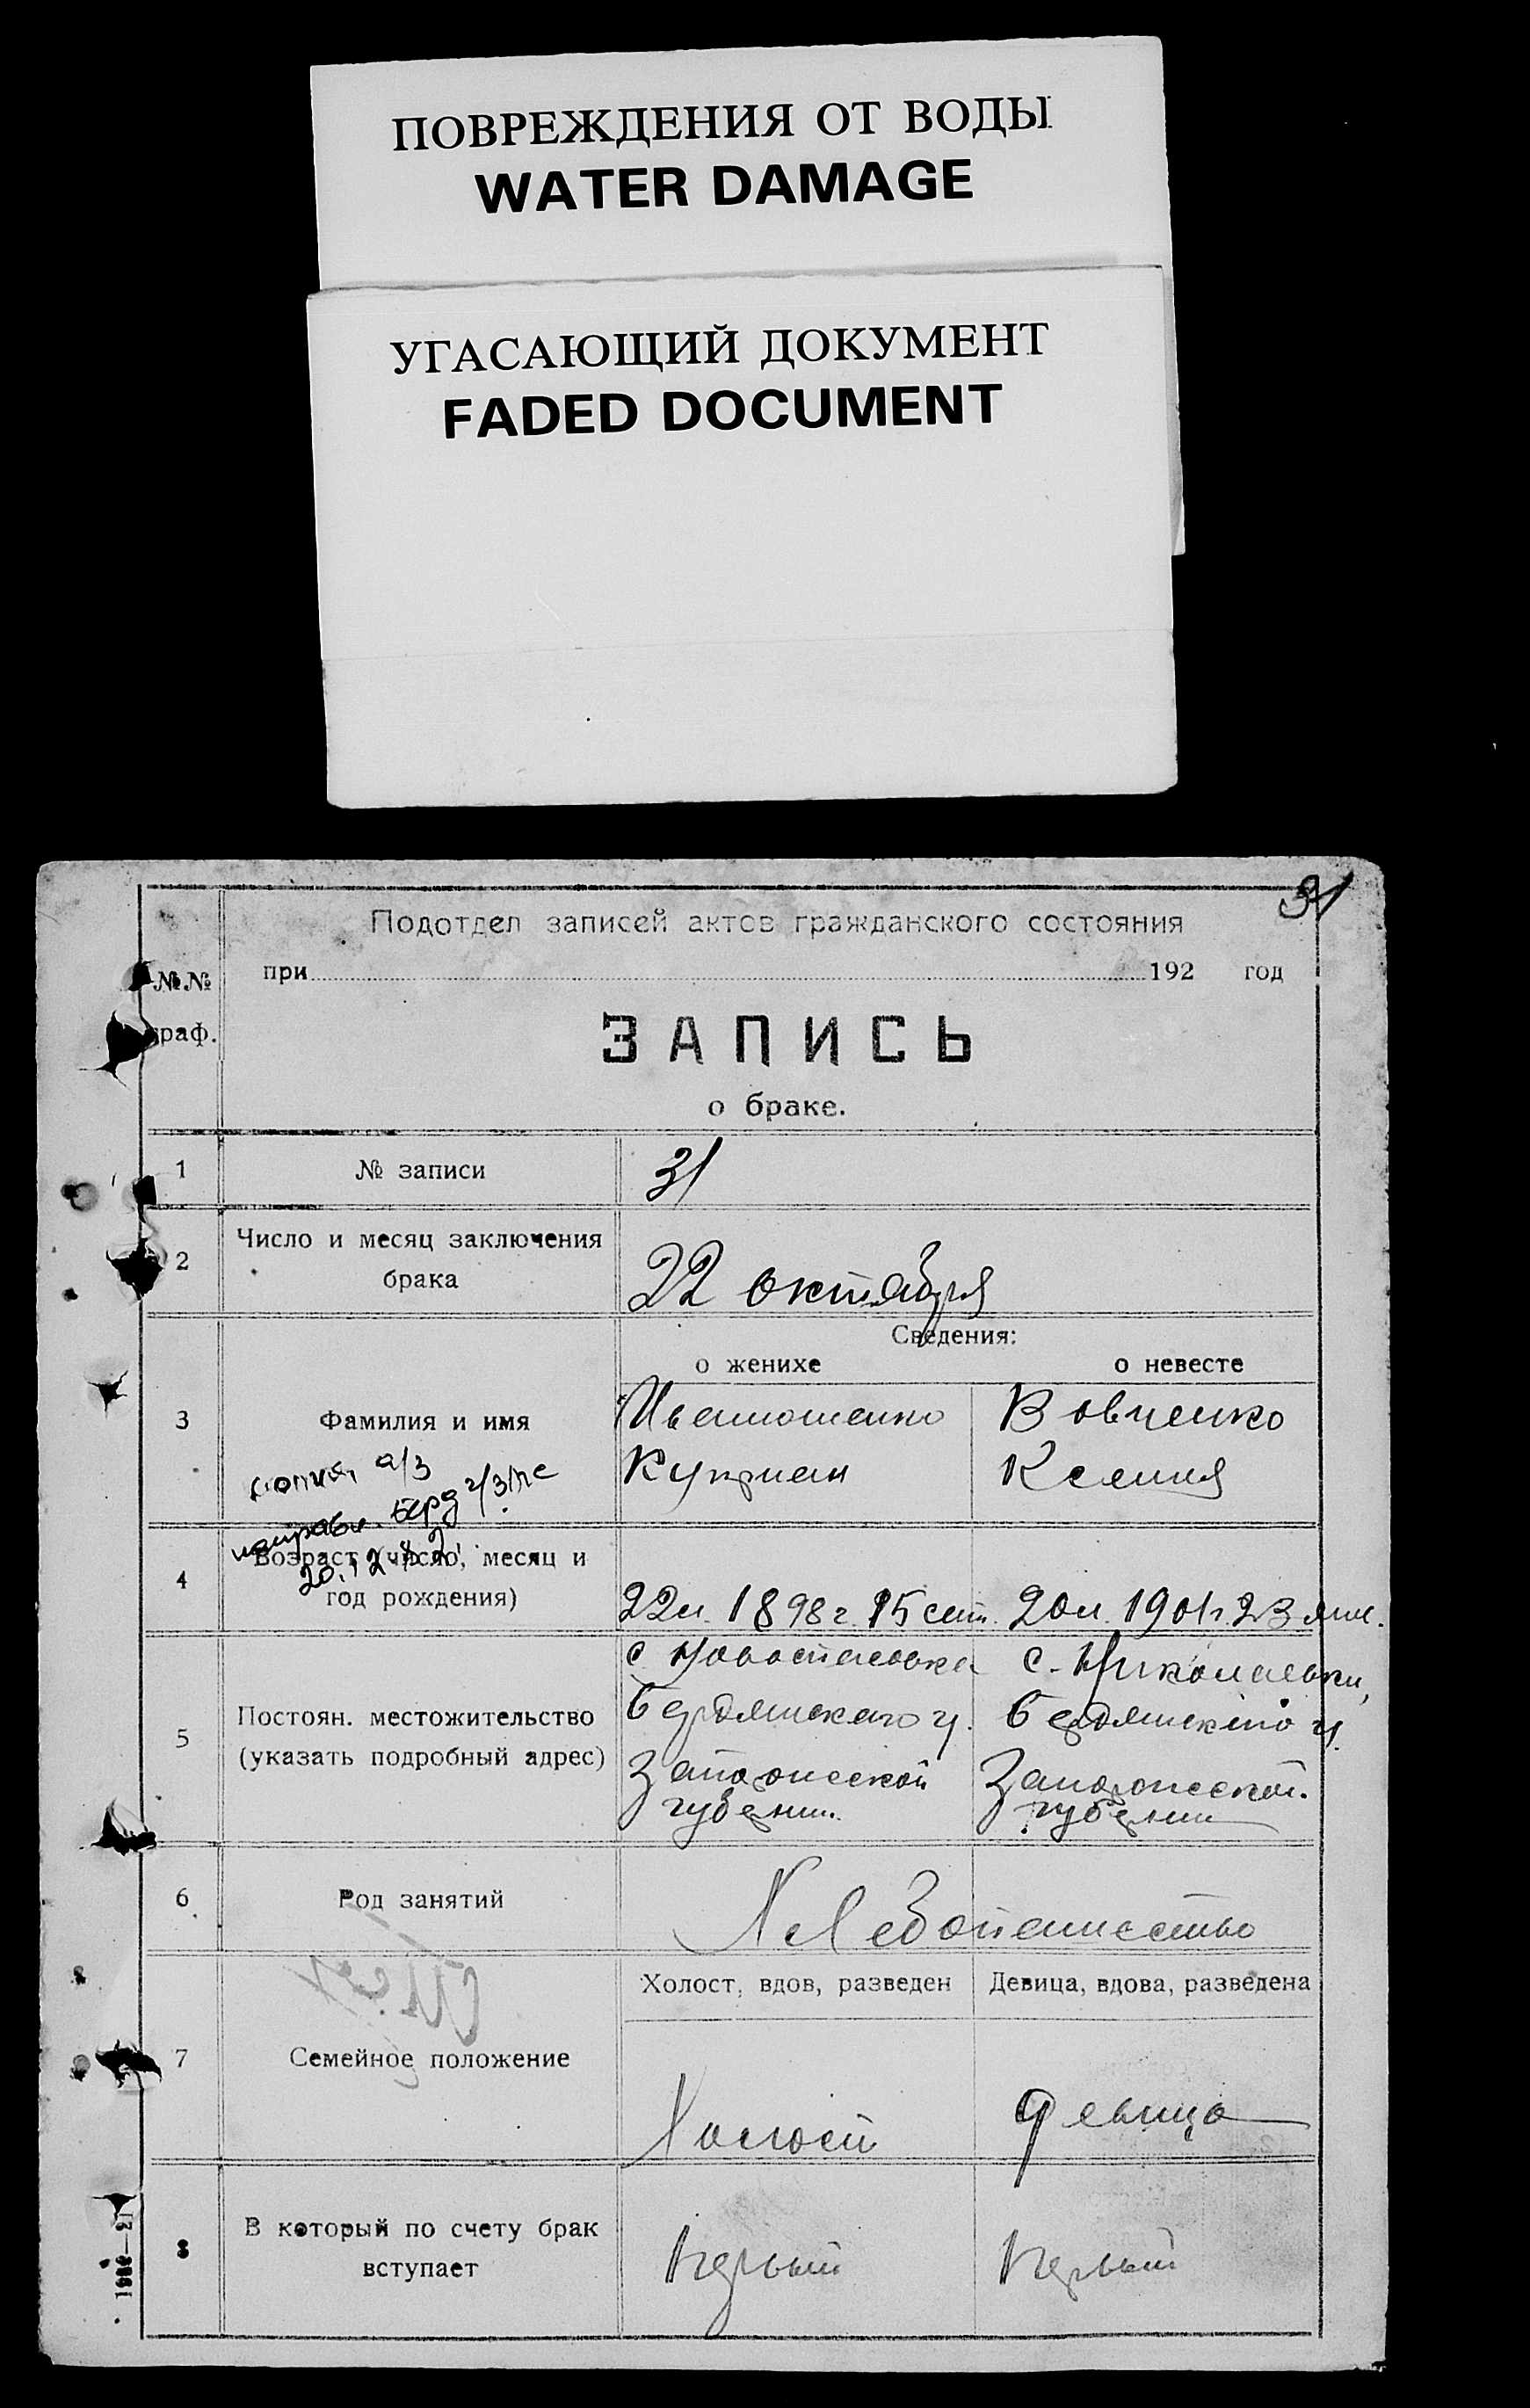 ПОВРЕЖДЕНИЯ ОТ ВОДЫ
WATER DAMAGE
УГАСАЮЩИЙ ДОКУМЕНТ
FADED DOCUMENT
31
Подотдел записей актов гражданского состояния
при 192 год
№№
граф.
ЗАПИСЬ
о браке.
1 № записи 31
2 Число и месяц заключения
брака
22 октября
Сведения:
о женихе о невесте
3 Фамилия и имя
Ивашошенко Вовченко
Куприан Ксения
копия а/з
направл. Берд г/загс
4 Возраст (число, месяц и
год рождения)
22 л. 1898 г. 15 сент. 20 л. 1901 г. 23 янв.
5 Постоян. местожительство
(указать подробный адрес)
с. Новоспасовка с. Николаевки,
Бердянского у. Бердянского у.
Запорожской Запорожской
губернии губернии
6 Род занятий Хлебопашество
Холост, вдов, разведен Девица, вдова, разведена
7 Семейное положение
Холост девица
8 В который по счету брак
вступает
первый первый